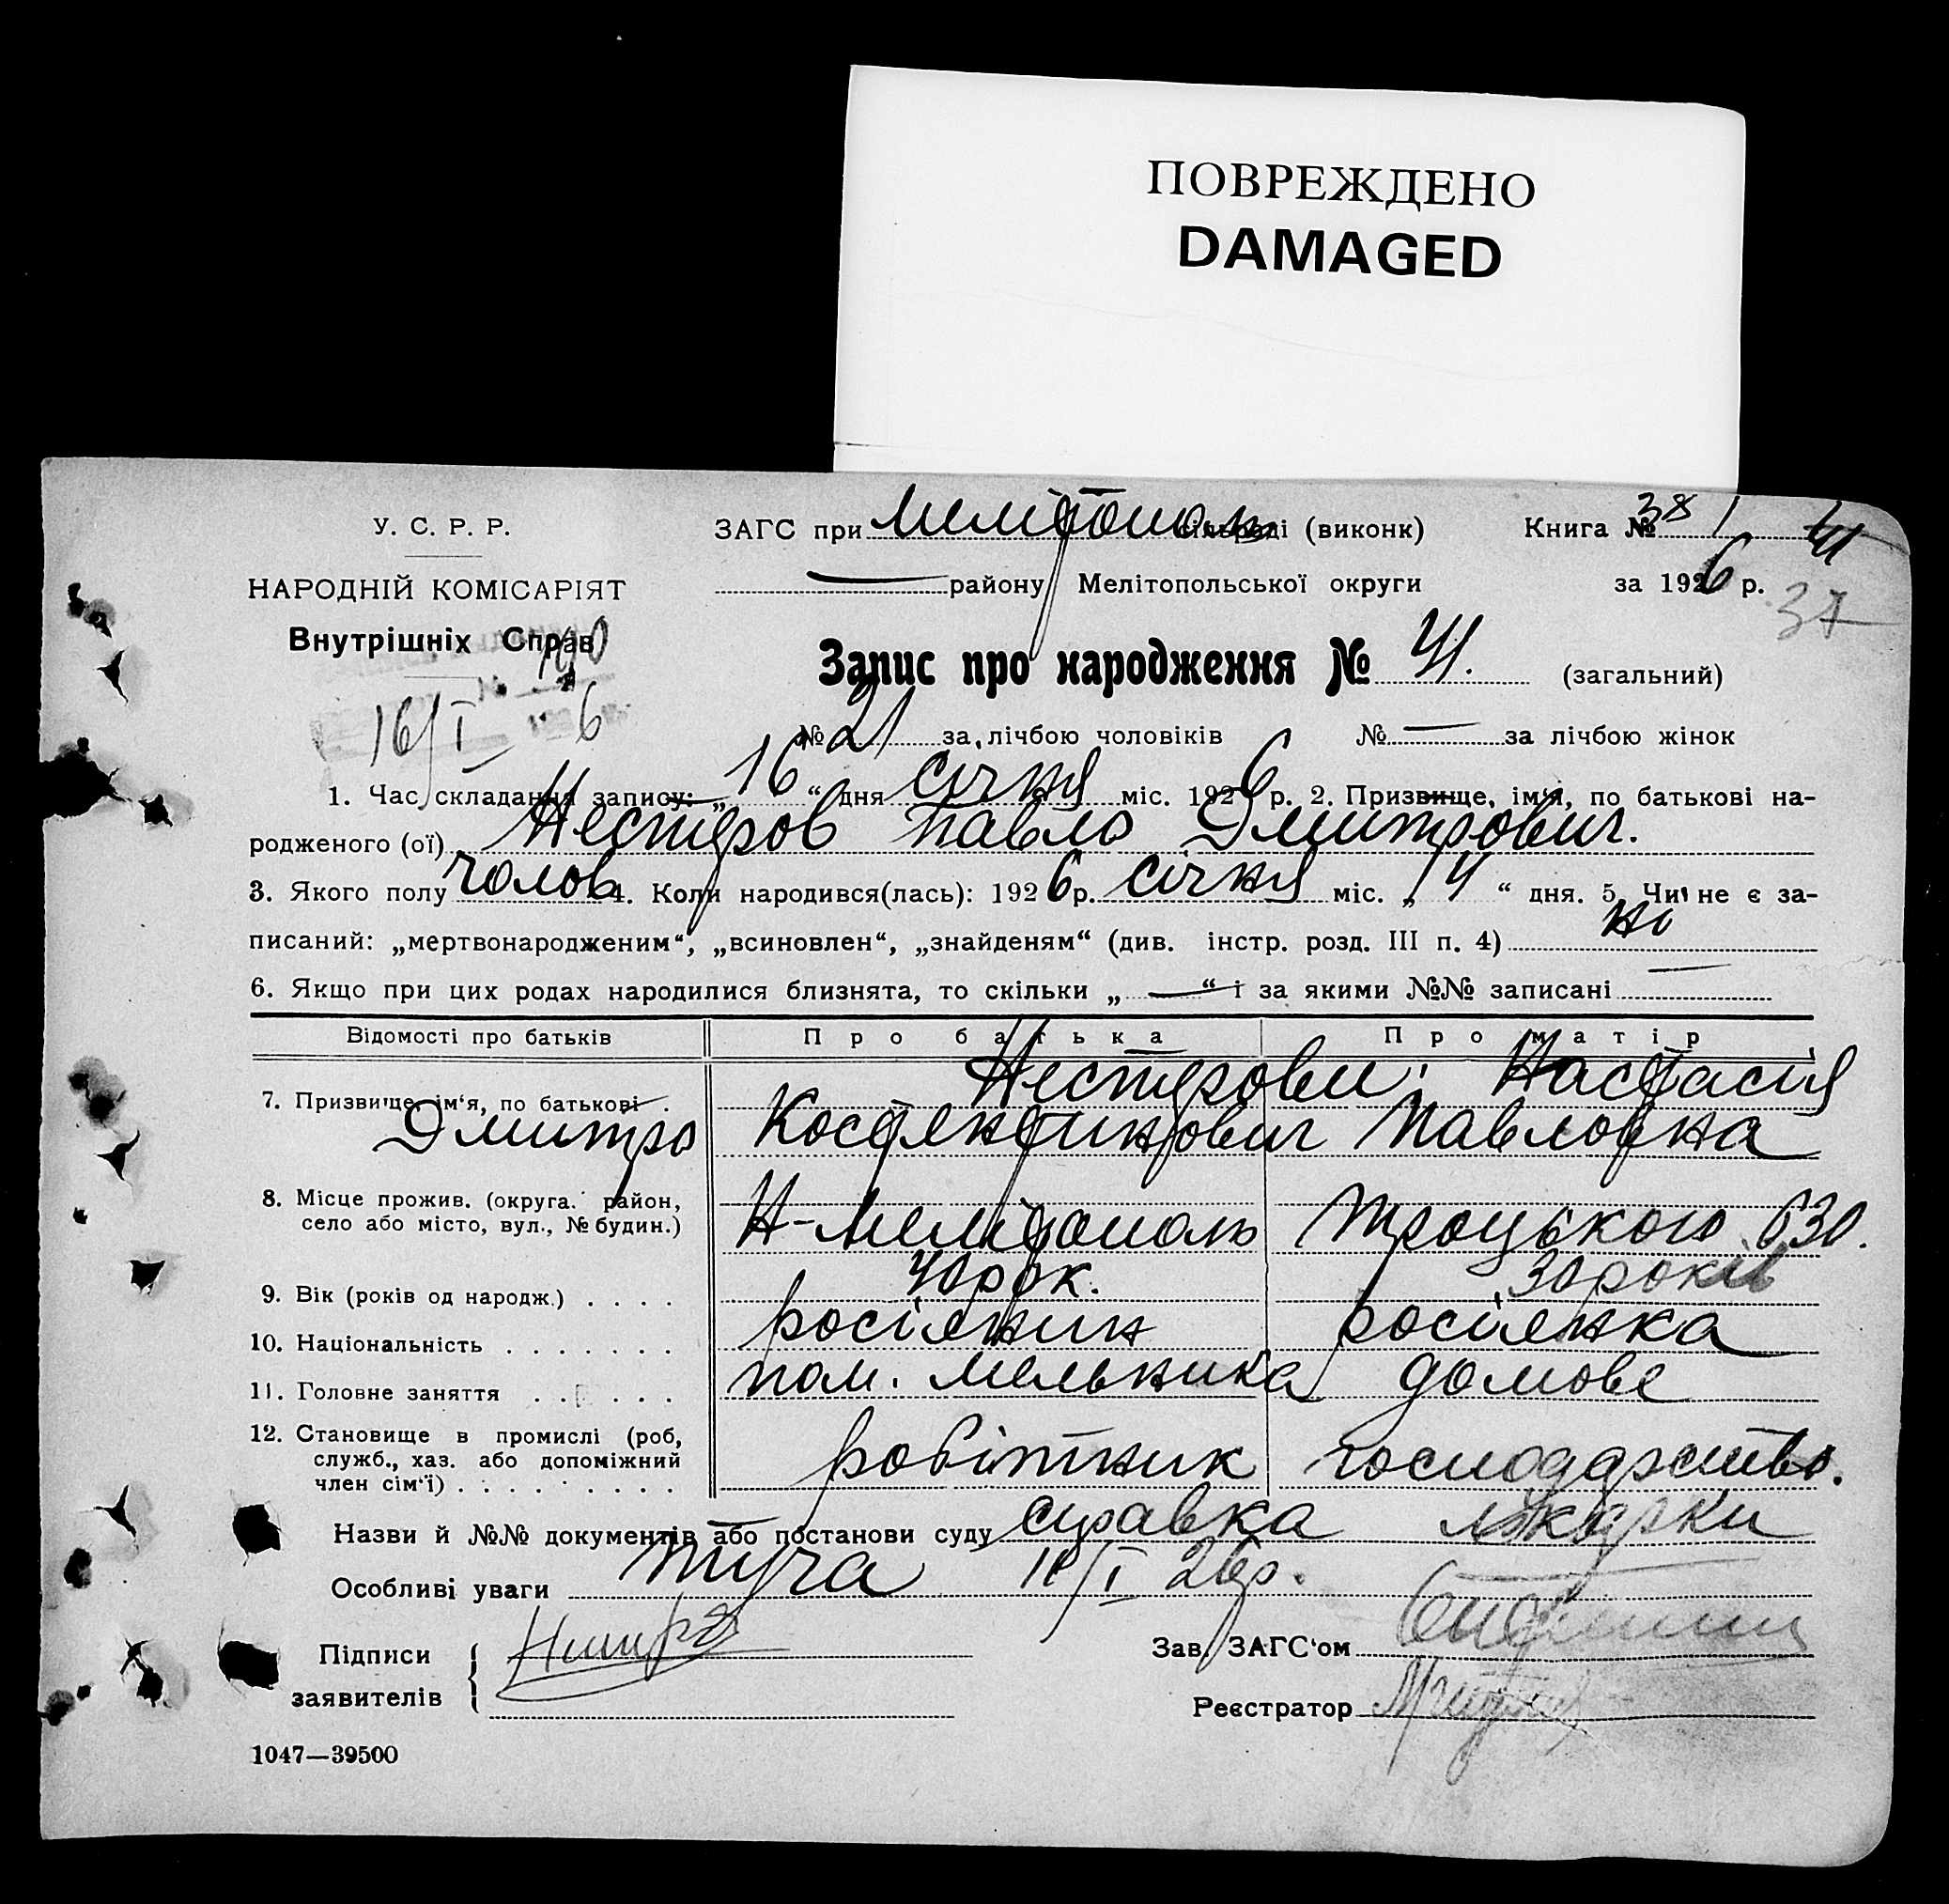 ПОВРЕЖДЕНО
DAMAGED
У. С. Р. Р.
НАРОДНІЙ КОМІСАРІЯТ
Внутрішніх Справ
190
16/I 6
ЗАГС при Мелітополь сільраді (виконк) Книга № 38 1 41
— району Мелітопольської округи за 1926 р. 37
Запис про народження № 41. (загальний)
№ 21 за лічбою чоловіків № — за лічбою жінок
1. Час складання запису: „16“ дня січня міс. 1926 р. 2. Призвище, ім‘я, по батькові на-
родженого (ої) Нестеров Павло Дмитрович.
3. Якого полу чолов 4. Коли народився(лась): 1926 р. січня міс. „14“ дня. 5. Чи не є за-
писаний: „мертвонародженим“, „всиновлен“, „знайденям“ (див. інстр. розд. III п. 4) ні
6. Якщо при цих родах народилися близнята, то скільки „—“ і за якими №№ записані —
Відомості про батьків Про батька Про матір
7. Призвище, ім‘я, по батькові . Нестерови: Настасія
Дмитро Костянтинович Павловна
8. Місце прожив. (округа. район,
село або місто, вул., № будин.) Н-Мелітополь Троцького 630.
9. Вік (років од народж.) . . . . 40 рок. 30 років
10. Національність . . . . . . . росіянин росіянка
11. Головне заняття . . . . . . пом. мельника домове
12. Становище в промислі (роб,
служб., хаз. або допоміжний
член сім‘ї) . . . . . . . . . робітник господарство.
Назви й №№ документів або постанови суду справка лікарки
Особливі уваги /I 26р.
Підписи
заявителів
Зав. ЗАГС‘ом
Реєстратор
1047—39500